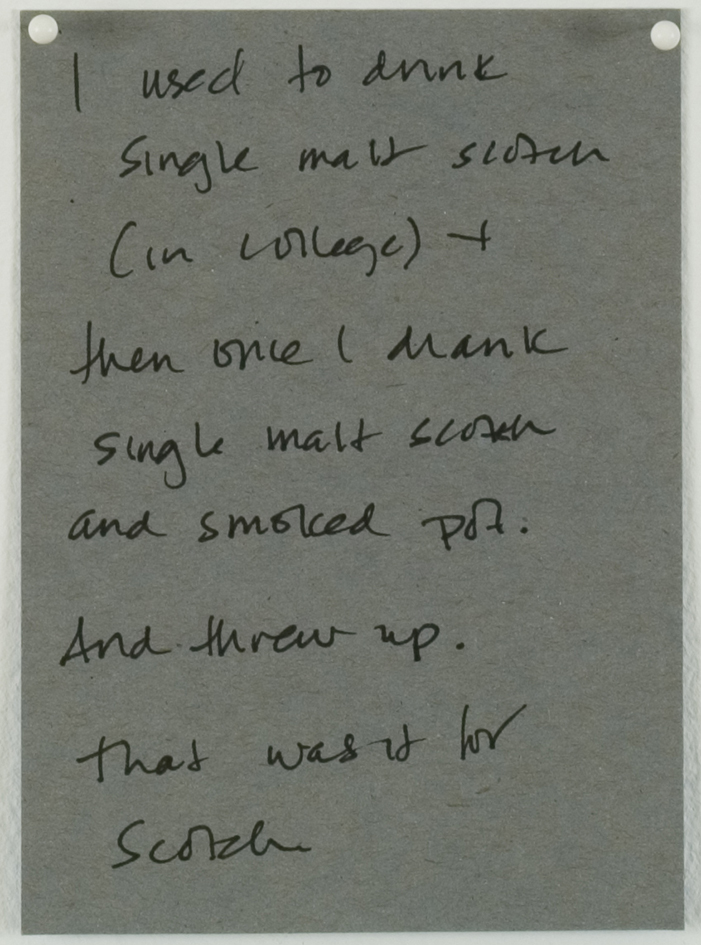 I used to drink
single malt scotch
(in college) +
then once I drank
single malt scotch
and smoked pot.
And threw up.
that was it for
Scotch